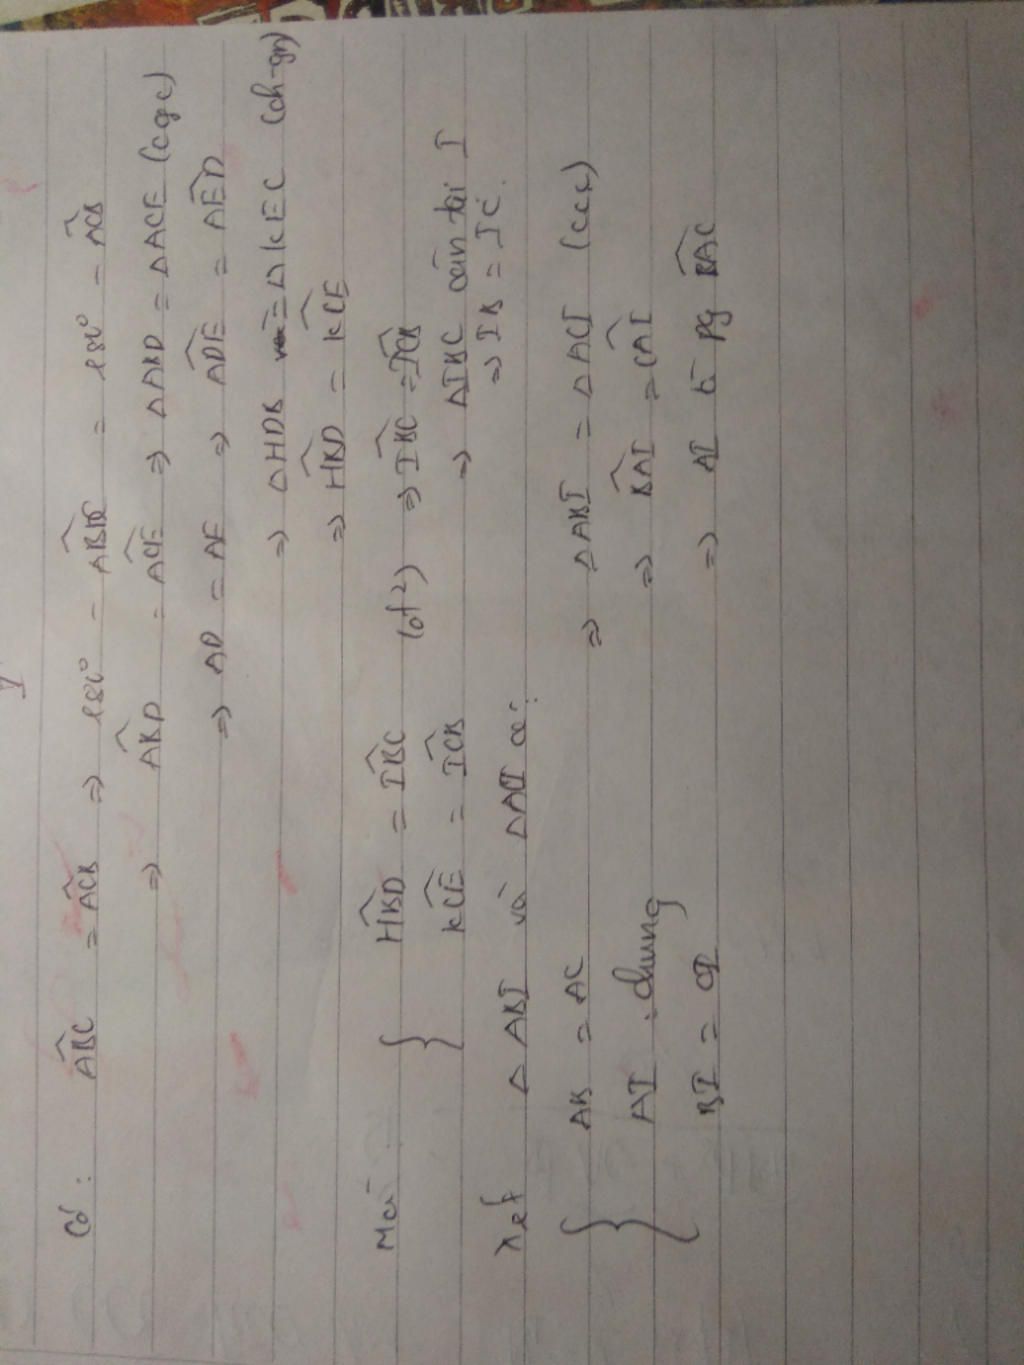 Có: ABC^ = ACB^ => 180° - ABC^ = 180° - ACB^
=> ABD^ = ACE^ => ΔABD = ΔACE (cgc)
=> AD = AE => ADE^ = AED^
=> ΔHDB = ΔKEC (ch-gn)
=> HBD^ = KCE^
Mà { HBD^ = IBC^ (đ²) => IBC^ = ICB^
KCE^ = ICB^ => ΔIBC cân tại I
=> IB = IC.
Xét Δ ABI và ΔACI có:
{ AB = AC => ΔABI = ΔACI (ccc)
AI chung => BAI^ = CAI^
BI = CI => AI là pg BAC^